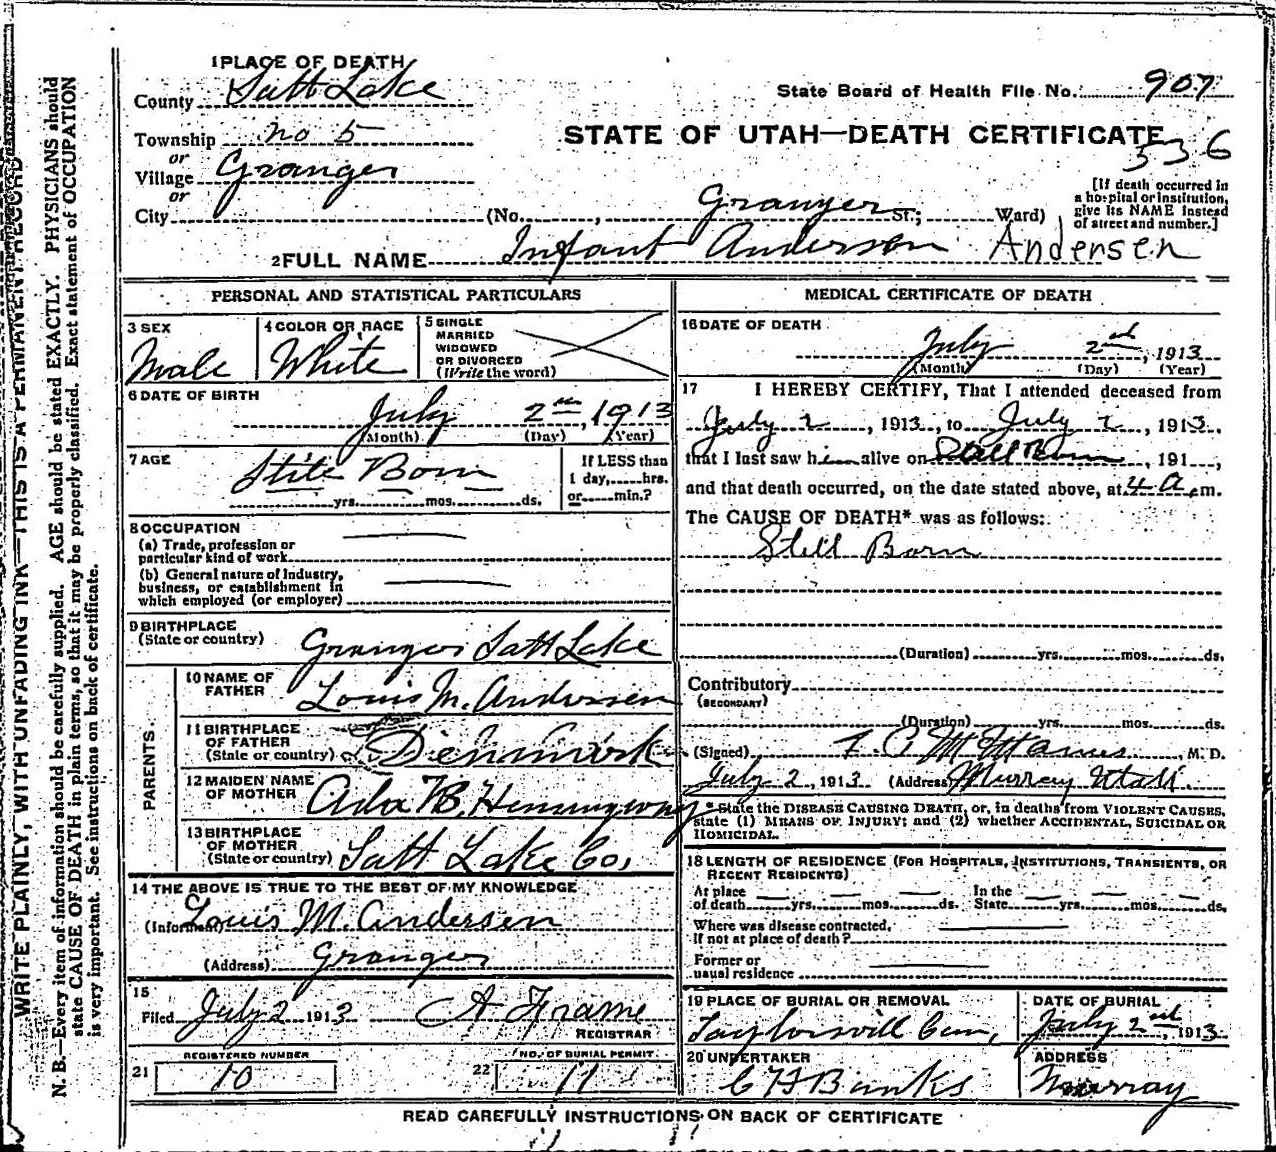 WRITE PLAINLY, WITH UNFADING INK—THIS IS A PERMANENT RECORD
N. B.—Every item of information should be carefully supplied. AGE should be stated EXACTLY. PHYSICIANS should
state CAUSE OF DEATH in plain terms, so that it may be properly classified. Exact statement of OCCUPATION
is very important. See instructions on back of certificate.
1 PLACE OF DEATH
County Salt Lake
State Board of Health File No. 907
Township no 5
STATE OF UTAH—DEATH CERTIFICATE
536
or
Village Granger
or
City (No. , Granger St.; Ward)
[If death occurred in
a hospital or institution,
give its NAME instead
of street and number.]
2 FULL NAME Infant Anderson Andersen
PERSONAL AND STATISTICAL PARTICULARS
3 SEX
Male
4 COLOR OR RACE
White
5 SINGLE
MARRIED
WIDOWED
OR DIVORCED
(Write the word)
6 DATE OF BIRTH
July 2nd, 1913
(Month) (Day) (Year)
7 AGE
Still Born
yrs. mos. ds.
If LESS than
1 day, hrs.
or min.?
8 OCCUPATION
(a) Trade, profession or
particular kind of work
(b) General nature of Industry,
business, or establishment in
which employed (or employer)
9 BIRTHPLACE
(State or country) Granger Salt Lake
PARENTS.
10 NAME OF
FATHER Louis M. Andersen
11 BIRTHPLACE
OF FATHER
(State or country) Denmark
12 MAIDEN NAME
OF MOTHER Ada B. Hemmingway
13 BIRTHPLACE
OF MOTHER
(State or country) Salt Lake Co.
14 THE ABOVE IS TRUE TO THE BEST OF MY KNOWLEDGE
(Informant) Louis M. Andersen
(Address) Granger
15
Filed July 2 1913 A Frame
REGISTRAR
REGISTERED NUMBER
21 10
NO. OF BURIAL PERMIT
22 11
MEDICAL CERTIFICATE OF DEATH
16 DATE OF DEATH
July 2nd, 1913
(Month) (Day) (Year)
17 I HEREBY CERTIFY, That I attended deceased from
July 2, 1913, to July 2, 1913,
that I last saw him alive on Still Born, 191 ,
and that death occurred, on the date stated above, at 4 a. m.
The CAUSE OF DEATH* was as follows:
Still Born
(Duration) yrs. mos. ds.
Contributory
(SECONDARY)
(Duration) yrs. mos. ds.
(Signed) , M. D.
July 2, 1913 (Address) Murray Utah.
* State the DISEASE CAUSING DEATH, or, in deaths from VIOLENT CAUSES,
state (1) MEANS OF INJURY; and (2) whether ACCIDENTAL, SUICIDAL OR
HOMICIDAL.
18 LENGTH OF RESIDENCE (FOR HOSPITALS, INSTITUTIONS, TRANSIENTS, OR
RECENT RESIDENTS)
At place
of death yrs. mos. ds.
In the
State yrs. mos. ds.
Where was disease contracted,
if not at place of death?
Former or
usual residence
19 PLACE OF BURIAL OR REMOVAL
Taylorsvill Cem,
DATE OF BURIAL
July 2nd, 1913
20 UNDERTAKER
Banks
ADDRESS
Murray
READ CAREFULLY INSTRUCTIONS ON BACK OF CERTIFICATE